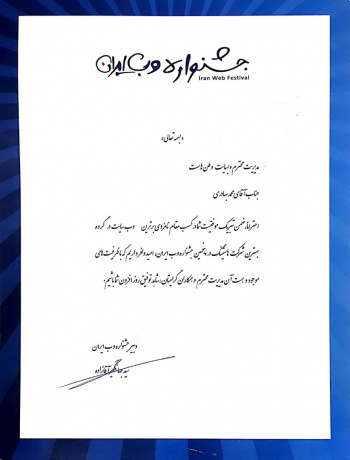 جشنواره وب ایران
Iran Web Festival
«بسمه تعالی»
مدیریت محترم وبسایت وطن هاست
جناب آقای محمد بهادری
احتراما، ضمن تبریک موفقیت شما در کسب مقام نامزدی برترین وب سایت در گروه
بهترین شرکت هاستینگ در پنجمین جشنواره وب ایران، امید و نظر داریم که با ظرفیت های
موجود و همت آن مدیریت محترم و همکاران گرامیتان، شاهد توفیق روز افزون شما باشیم.
دبیر جشنواره وب ایران
سید جهانگیر آقازاده